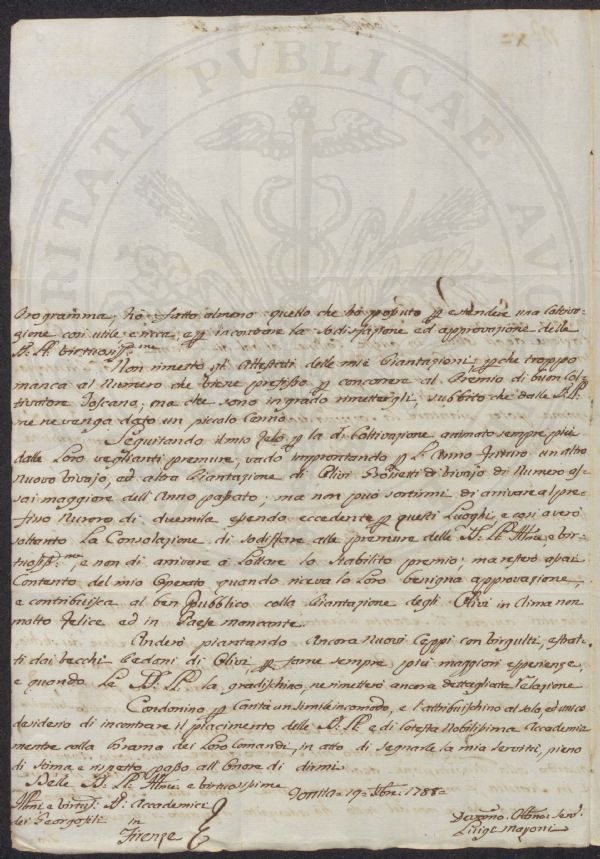 PUBLICAE
Programma; hò fatto almeno quello che hò potuto p estendere una Coltiva-
zione così utile e ricca, e p incontrare la sodisfazione ed approvazione delle
Non rimetto gli Attestati delle mie Piantazioni; p che troppo
manca al Numero che viene prefisso p concorrere al Premio di buon Col-
tivatore Toscano; ma che sono in grado rimettergli, subbito che dalle
me ne venga dato un piccolo Cenno.
Seguitando il mio Zelo p la d: Coltivazione animato sempre più
dalle Loro veglianti premure, vado improntando p l'Anno futuro un altro
nuovo Vivajo, ed altra Piantazione di Olivi di Vivajo di Numero as-
sai maggiore dell'Anno passato; ma non può sortirmi di arrivare al pre-
fisso Numero di duemila essendo eccedente p questi Luoghi, e così averò
soltanto la Consolazione di sodisfare alle premure delle
e non di arrivare à lo Stabilito premio; ma resterò assai
Contento del mio Operato quando riceva la loro benigna approvazione,
e contribuisca al ben Pubblico colla Piantazione degli Olivi in Clima non
molto felice ed in Paese mancante.
Anderò piantando Ancora Nuovi Ceppi con Virgulti, estrat-
ti dai vecchi Pedani di Olivi, p farne sempre più maggiori esperienze,
e quando le la gradischino, ne rimetterò ancora dettagliata relazione
Condonino, p Carità un simile incomodo, e l'attribuischino al solo, ed unico
desiderio di incontrare il piacimento delle e di cotesta Nobilissima Accademia
mentre colla brama dei Loro Comandi, in atto di segnarle la mia servitù, pieno
di stima e rispetto passo all'Onore di dirmi
Delle e virtuosissime
1788
Accademici
dei Georgofili in
Firenze